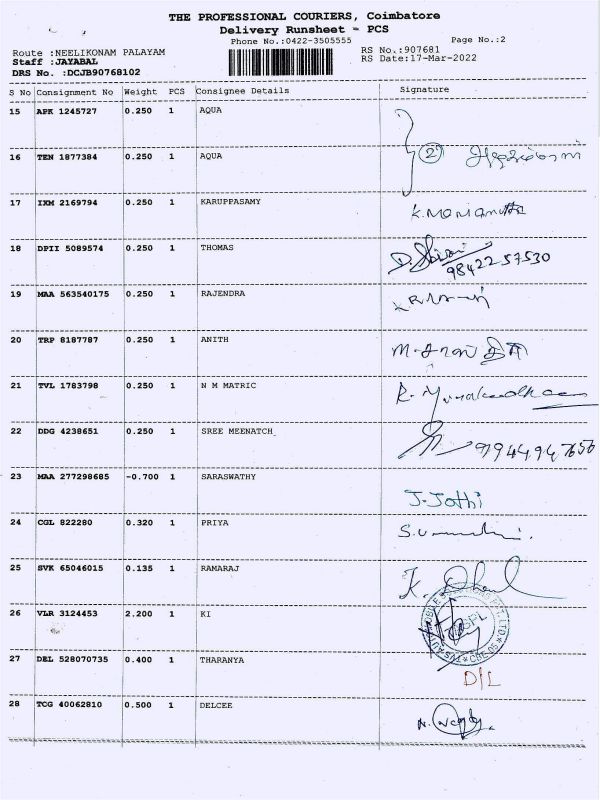 THE PROFESSIONAL COURIERS, Coimbatore
Delivery Runsheet - PCS
Phone No.:0422-3505555
Page No.:2
Route :NEELIKONAM PALAYAM
RS No.:907681
Staff :JAYABAL
RS Date:17-Mar-2022
DRS No. :DCJB90768102
S No Consignment No Weight PCS Consignee Details Signature
15 APK 1245727 0.250 1 AQUA
16 TEN 1877384 0.250 1 AQUA 2
17 IXM 2169794 0.250 1 KARUPPASAMY
18 DPII 5089574 0.250 1 THOMAS
98422 57530
19 MAA 563540175 0.250 1 RAJENDRA
20 TRP 8187787 0.250 1 ANITH
21 TVL 1783798 0.250 1 N M MATRIC
22 DDG 4238651 0.250 1 SREE MEENATCH
23 MAA 277298685 -0.700 1 SARASWATHY
J. Jothi
24 CGL 822280 0.320 1 PRIYA
25 SVK 65046015 0.135 1 RAMARAJ
26 VLR 3124453 2.200 1 KI
27 DEL 528070735 0.400 1 THARANYA
D/L
28 TCG 40062810 0.500 1 DELCEE